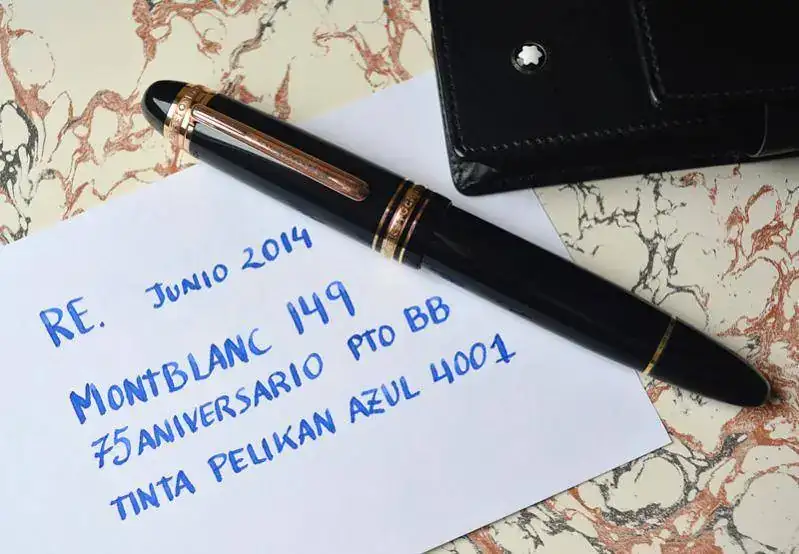 RE. JUNIO 2014
MONTBLANC 149
75 ANIVERSARIO PTO BB
TINTA PELIKAN AZUL 4001